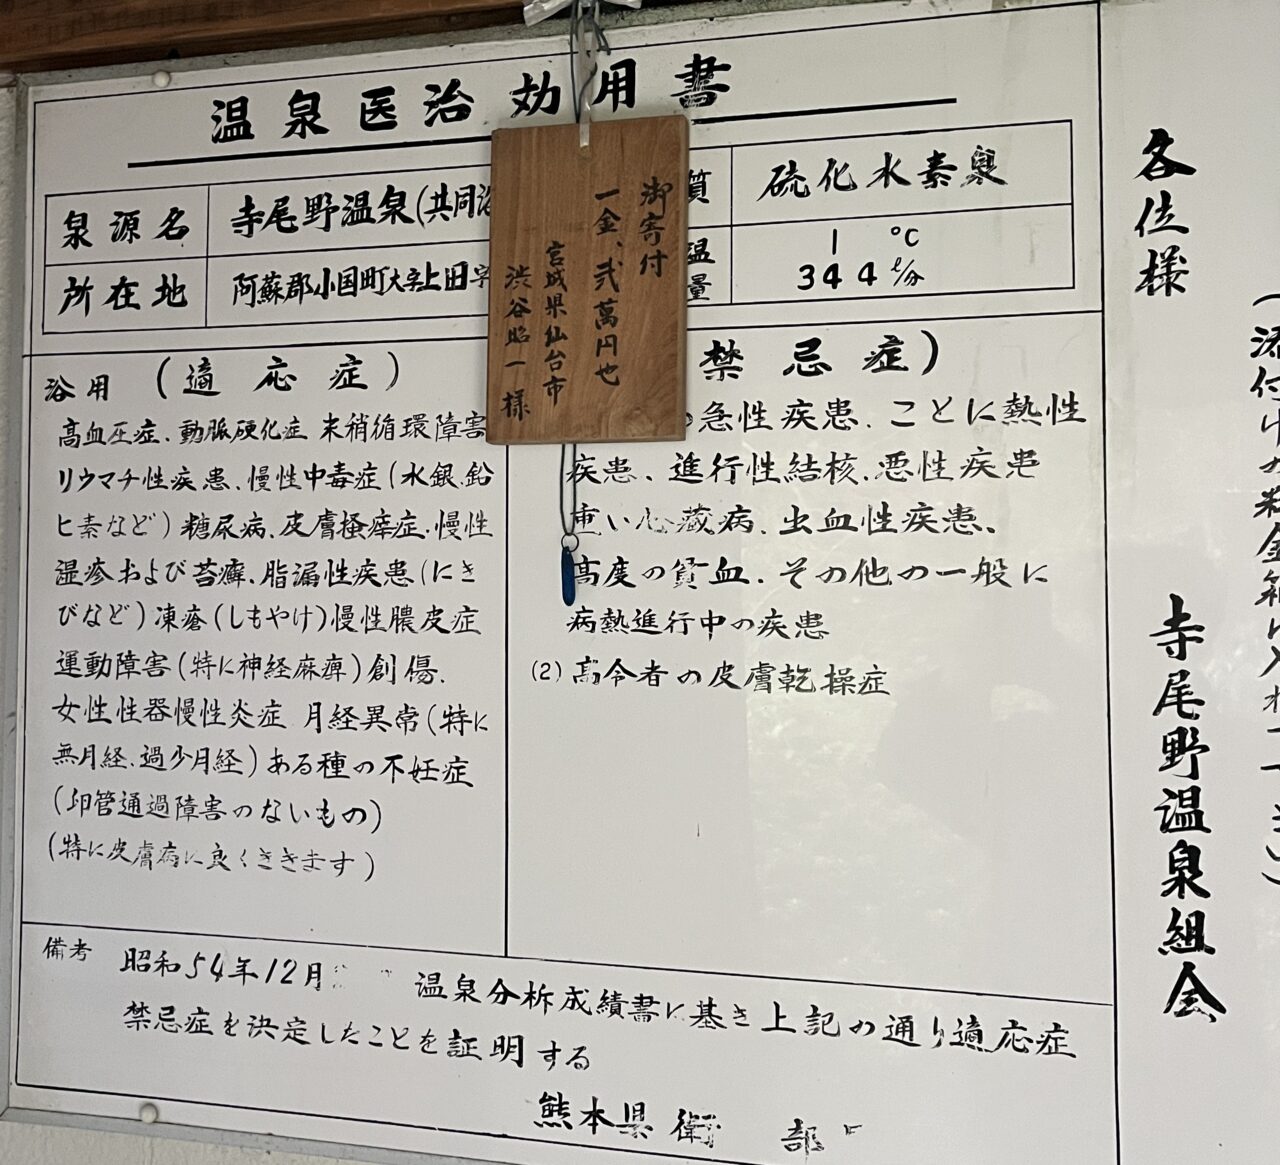 温泉医治効用書
泉源名 寺尾野温泉(共同浴 質 硫化水素泉
所在地 阿蘇郡小国町大字上田字 温 1 ℃
量 344 ℓ/分
御寄付
一金、弐萬円也
宮城県仙台市
渋谷昭一様
浴用 (適応症)
高血圧症、動脈硬化症 末梢循環障害
リウマチ性疾患、慢性中毒症(水銀、鉛
ヒ素など)糖尿病、皮膚掻痒症、慢性
湿疹および苔癬、脂漏性疾患(にき
びなど)凍瘡(しもやけ)慢性膿皮症
運動障害(特に神経麻痺)創傷、
女性性器慢性炎症 月経異常(特に
無月経、過少月経)ある種の不妊症
(卵管通過障害のないもの)
(特に皮膚病に良くききます)
禁忌症)
急性疾患、ことに熱性
疾患、進行性結核、悪性疾患
重い心臓病、出血性疾患、
高度の貧血、その他の一般に
病熱進行中の疾患
(2)高令者の皮膚乾操症
備考 昭和54年12月 温泉分析成績書に基き上記の通り適応症
禁忌症を決定したことを証明する
熊本県衛 部
各位様
(添付けの料金箱に入れて下さい)
寺尾野温泉組会